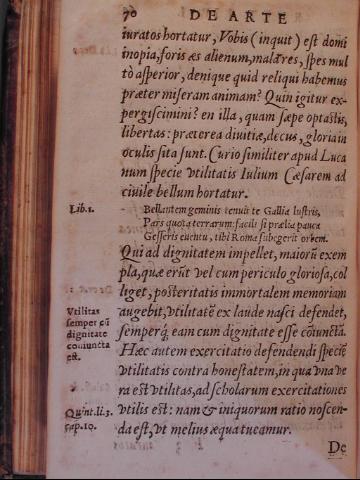 70 DE ARTE
iuratos hortatur, Vobis (inquit) est domi
inopia, foris æs alienum, mala res, spes mul
tò asperior, denique quid reliqui habemus
præter miseram animam? Quin igitur ex-
pergiscimini? en illa, quam sæpe optastis,
libertas: præterea diuitiæ, decus, gloria in
oculis sita sunt. Curio similiter apud Luca
num specie vtilitatis Iulium Cæsarem ad
ciuile bellum hortatur.
Lib. 1. Bellantem geminis tenuit te Gallia lustris,
Pars quota terrarum: facili si prælia pauca
Gesseris euentu, tibi Roma subegerit orbem.
Qui ad dignitatem impellet, maiorũ exem
pla, quæ erũt vel cum periculo gloriosa, col
liget, posteritatis immortalem memoriam
augebit, vtilitatẽ ex laude nasci defendet,
semperq́; eam cum dignitate esse cõiunctã.
Vtilitas
semper cũ
dignitate
coniuncta
est.
Hæc autem exercitatio defendendi speciẽ
vtilitatis contra honestatem, in qua vna ve
ra est vtilitas, ad scholarum exercitationes
vtilis est: nam & iniquorum ratio noscen-
da est, vt melius æqua tueamur.
Quint. li. 3.
cap. 10.
De